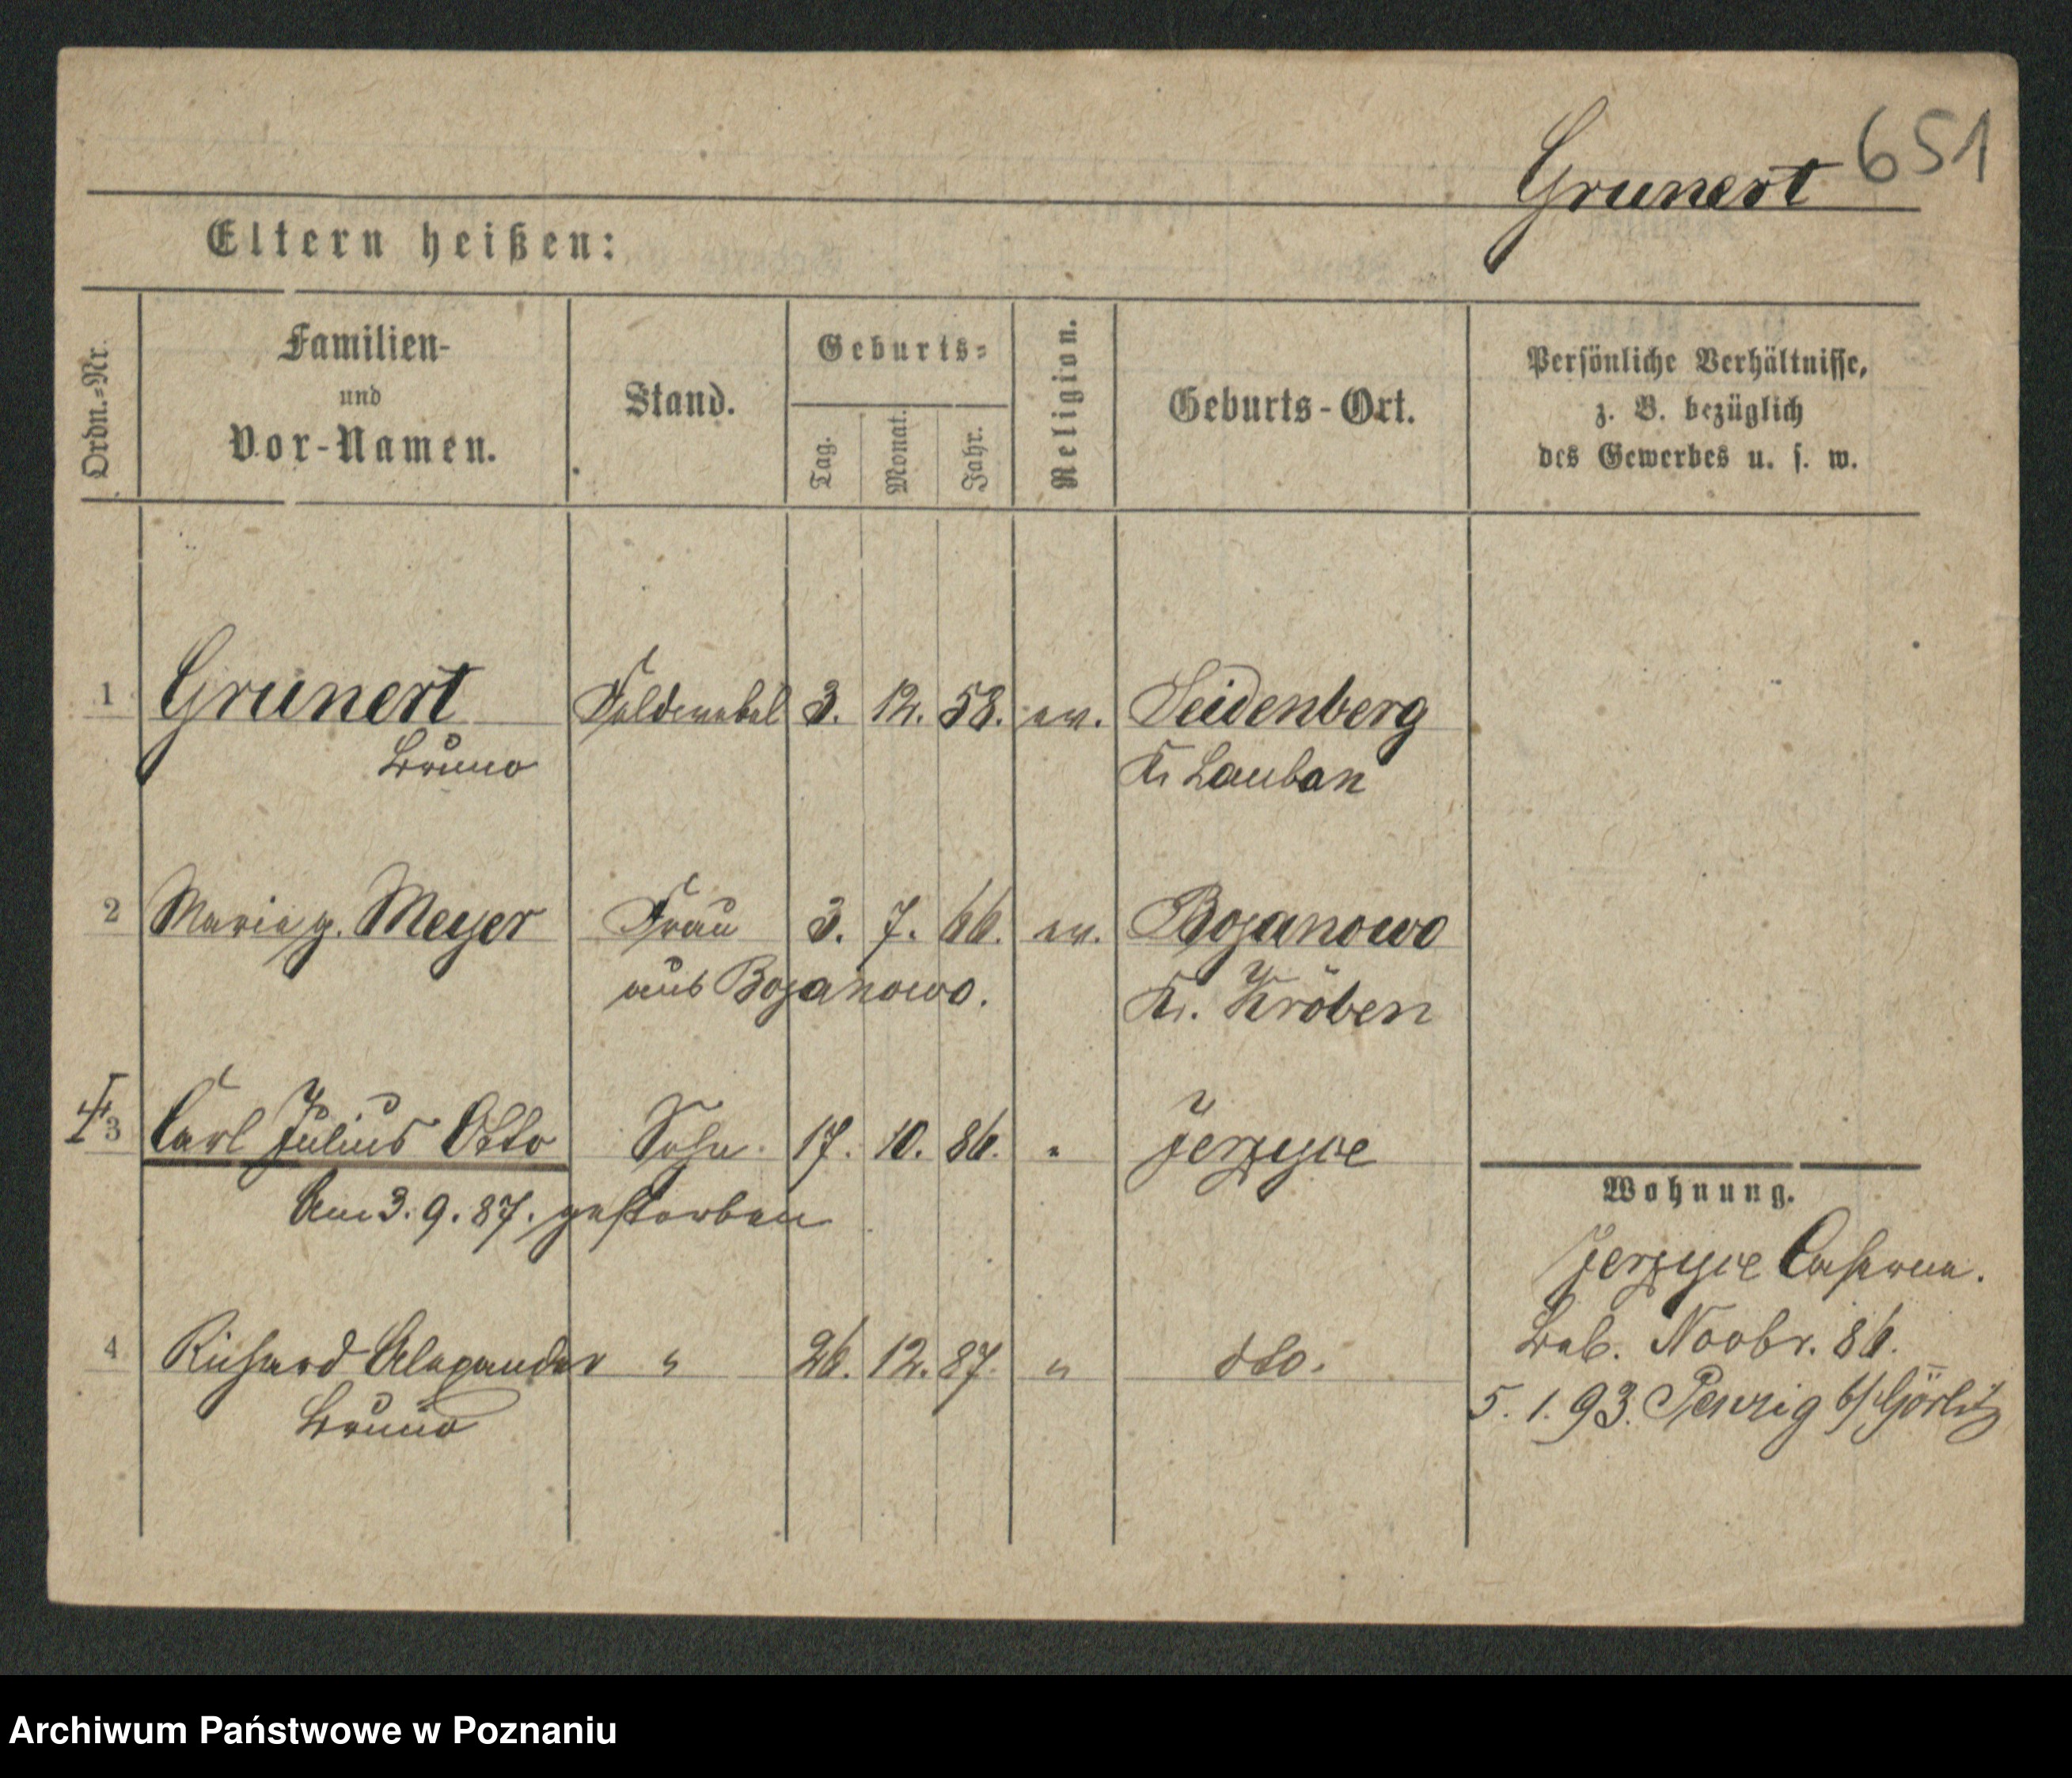 651
Grunert
Eltern heißen:
Ordn.=Nr.
Familien-
und
Vor-Namen.
Stand.
Geburts=
Tag.
Monat.
Jahr.
Religion.
Geburts-Ort.
Persönliche Verhältnisse,
z. B. bezüglich
des Gewerbes u. s. w.
1 Grunert Feldwebel 3. 12. 58. ev. Seidenberg
Bruno Kr. Lauban
2 Marie g. Meyer Frau 3. 7. 66. ev. Bojanowo
aus Bojanowo. Kr. Kröben
3 Carl Julius Otto Sohn 17. 10. 86. " Jerzyce
Am 3. 9. 87. gestorben
Wohnung.
Jerzyce Caserne.
4 Richard Alexander " 26. 12. 87. " dto.
Bruno
Novbr. 86.
5. 1. 93. Penzig b/Görlitz
Archiwum Państwowe w Poznaniu